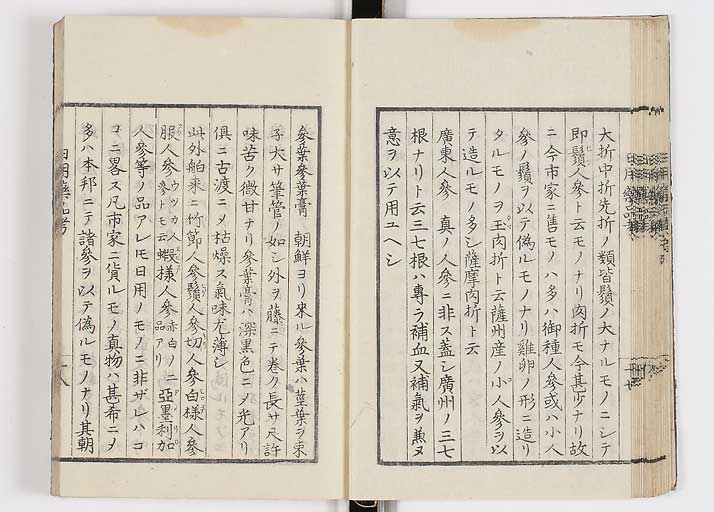 大折中折先折ノ類皆鬚ノ大ナルモノニシテ
即鬚人參ト云モノナリ肉折モ今甚少ナリ故
ニ今市家ニ售モノハ多ハ御種人參或ハ小人
參ノ鬚ヲ以テ偽ルモノナリ雞卵ノ形ニ造リ
タルモノヲ玉肉折ト云薩州産ノ小人參ヲ以
テ造ルモノ多シ薩摩肉折ト云
廣東人參　真ノ人參ニ非ス蓋シ廣州ノ三七
根ナリト云三七根ハ專ラ補血又補氣ヲ兼ヌ
意ヲ以テ用ユヘシ
參葉參葉膏　朝鮮ヨリ來ル參葉ハ莖葉ヲ束
子大サ筆管ノ如シ外ヲ藤ニテ巻ク長サ尺許
味苦ク微甘ナリ參葉膏ハ深黒色ニ〆光アリ
俱ニ古渡ニ〆枯燥ス氣味尤薄シ
此外舶來ニ竹節人參鬚人參切人參白様人參
服人參ウツカ人參トモ云蝦様人參赤白ノ二品アリ亞墨利加
人參等ノ品アレ𪜈日用ノモノニ非ザレハコ
コニ畧ス凡市家ニ貨ルモノ真物ハ甚希ニ〆
多ハ本邦ニテ諸參ヲ以テ偽ルモノナリ其朝
日用藥品考
十八